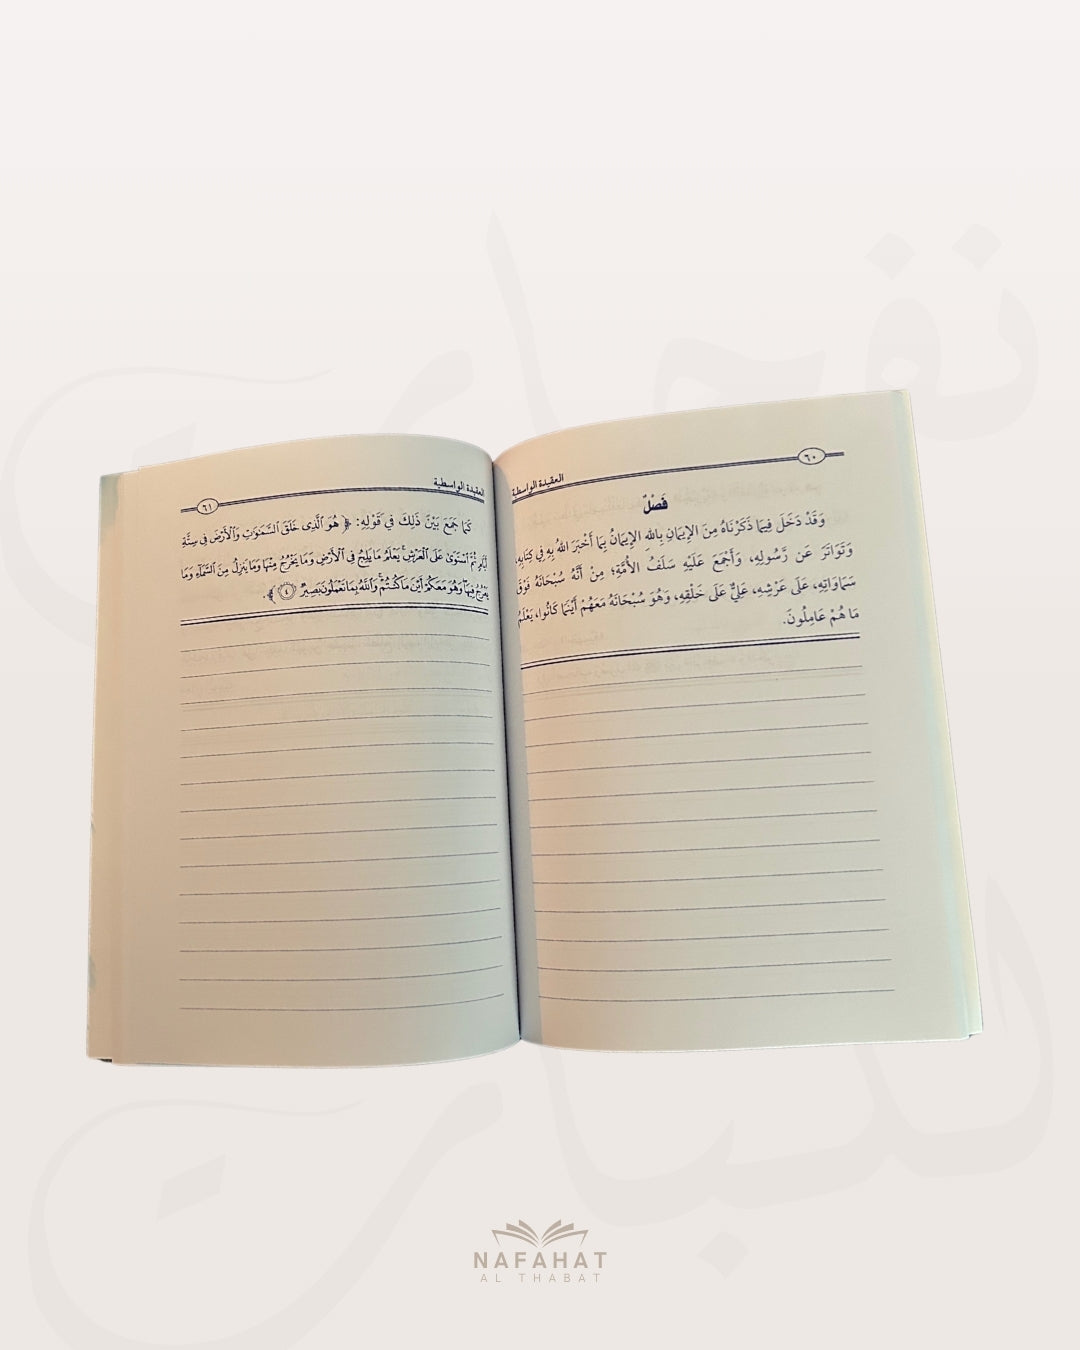 ٦٠
العقيدة الواسطية
فَصْلٌ
وَقَدْ دَخَلَ فِيمَا ذَكَرْنَاهُ مِنَ الإِيمَانِ بِاللهِ الإِيمَانُ بِمَا أَخْبَرَ اللهُ بِهِ فِي كِتَابِهِ،
وَتَوَاتَرَ عَن رَّسُولِهِ، وَأَجْمَعَ عَلَيْهِ سَلَفُ الأُمَّةِ؛ مِنْ أَنَّهُ سُبْحَانَهُ فَوْقَ
سَمَاوَاتِهِ، عَلَى عَرْشِهِ، عَلِيٌّ عَلَى خَلْقِهِ، وَهُوَ سُبْحَانَهُ مَعَهُمْ أَيْنَمَا كَانُوا، يَعْلَمُ
مَا هُمْ عَامِلُونَ.
العقيدة الواسطية
٦١
كَمَا جَمَعَ بَيْنَ ذَلِكَ فِي قَوْلِهِ: ﴿ هُوَ ٱلَّذِى خَلَقَ ٱلسَّمَٰوَٰتِ وَٱلْأَرْضَ فِى سِتَّةِ
أَيَّامٍ ثُمَّ ٱسْتَوَىٰ عَلَى ٱلْعَرْشِ ۚ يَعْلَمُ مَا يَلِجُ فِى ٱلْأَرْضِ وَمَا يَخْرُجُ مِنْهَا وَمَا يَنزِلُ مِنَ ٱلسَّمَآءِ وَمَا
يَعْرُجُ فِيهَا ۖ وَهُوَ مَعَكُمْ أَيْنَ مَا كُنتُمْ ۚ وَٱللَّهُ بِمَا تَعْمَلُونَ بَصِيرٌ ٤ ﴾.
نفحات
للثبات
NAFAHAT
AL THABAT